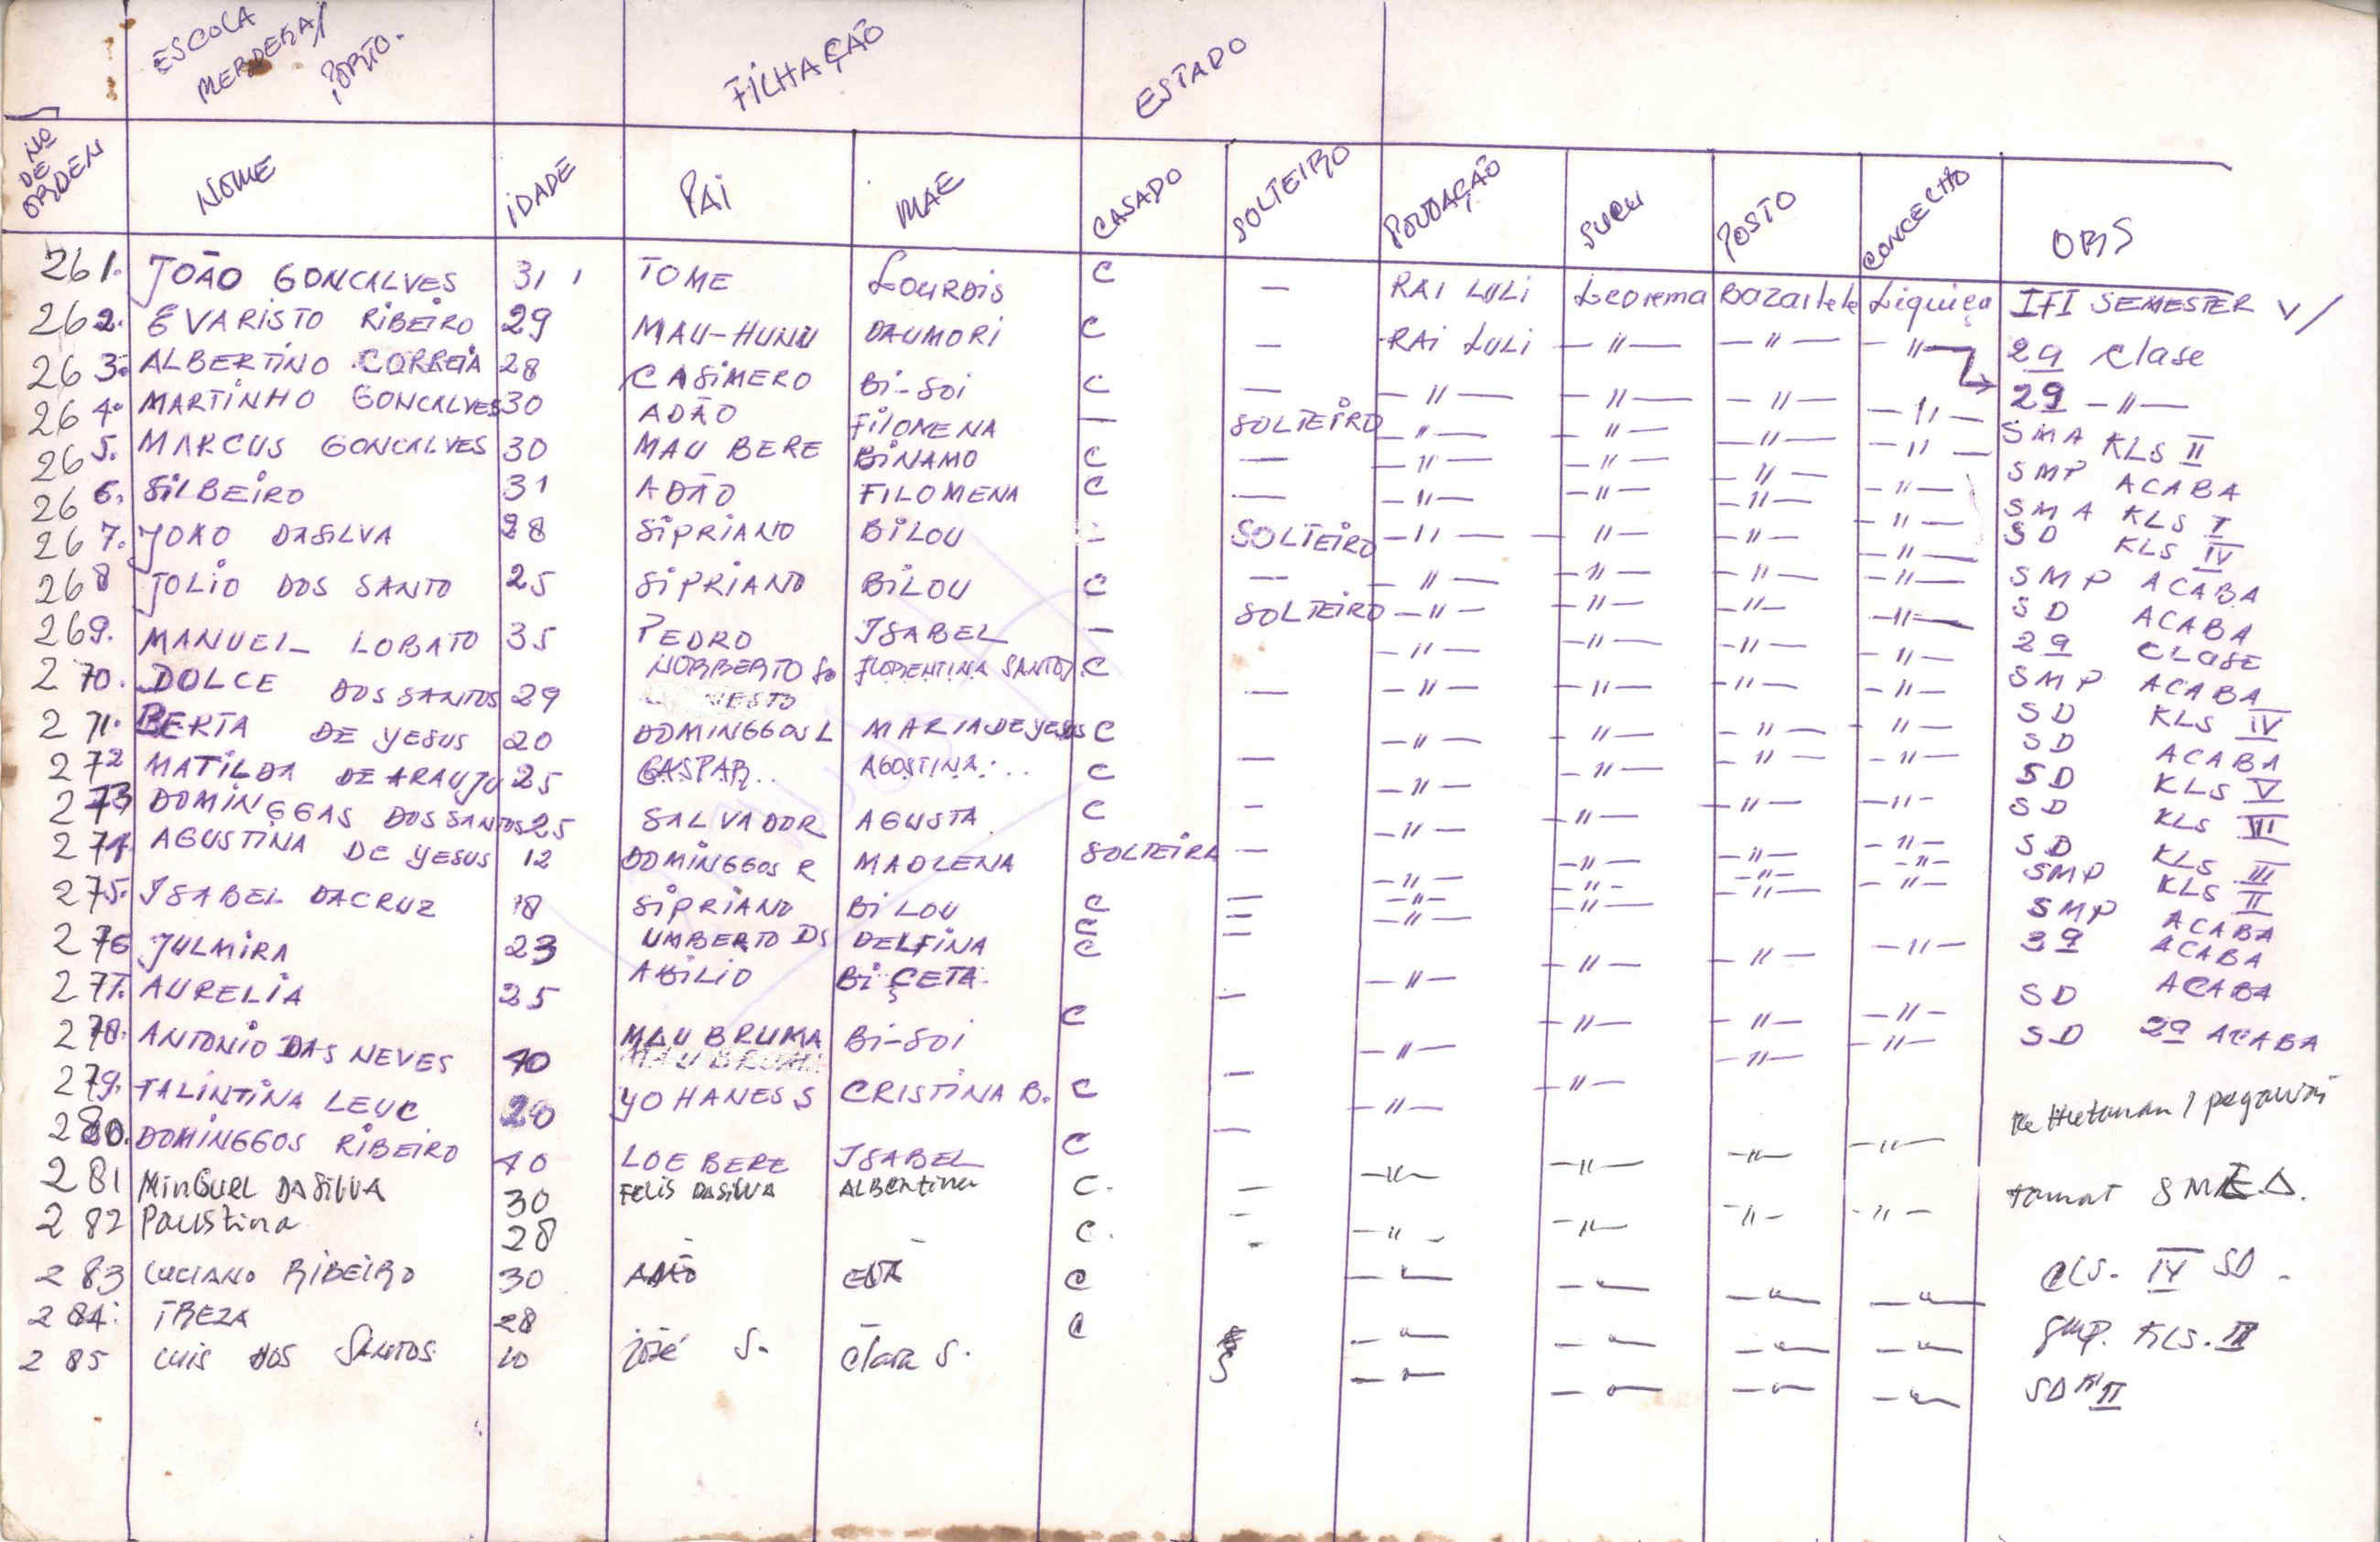 ESCOLA
MERDEKA/
PORTO.
FILHAÇÃO
ESTADO
Nº DE ORDEN NOME IDADE PAI MAE CASADO SOLTEIRO POVOAÇÃO SUCU POSTO CONCELHO OBS
261. JOÃO GONCALVES 31 TOME LOURDIS C — RAI LULI Leorema Bazartete Liquiça IFI SEMESTER V/
262. EVARISTO RIBEIRO 29 MAU-HUNU DAUMORI C — RAI LULI —"— —"— —"— 2ª Clase
263. ALBERTINO CORREIA 28 CASIMERO Bi-Soi C — —"— —"— —"— 2ª —"—
264. MARTINHO GONCALVES 30 ADÃO FILOMENA — SOLTEIRO —"— —"— —"— —"— SMA KLS II
265. MARCUS GONCALVES 30 MAU BERE BINAMO C — —"— —"— —"— —"— SMP ACABA
266. SILBEIRO 31 ADÃO FILOMENA C — —"— —"— —"— —"— SMA KLS I
267. JOAO DASILVA 28 SIPRIANO BILOU — SOLTEIRO —"— —"— —"— —"— SD KLS IV
268 JOLIO DOS SANTO 25 SIPRIANO BILOU C — —"— —"— —"— —"— SMP ACABA
269. MANUEL LOBATO 35 PEDRO ISABEL — SOLTEIRO —"— —"— —"— —"— SD ACABA
270. DOLCE DOS SANTOS 29 NORBERTO FLORENTINA SANTOS C —"— —"— —"— —"— 2ª CLASE
271. BERTA DE YESUS 20 DOMINGGOS L MARIA DE YESUS C — —"— —"— —"— —"— SMP ACABA
272 MATILDA DE ARAUJU 25 GASPAR.. AGOSTINA... C — —"— —"— —"— —"— SD KLS IV
273 DOMINGGAS DOS SANTOS 25 SALVADOR AGUSTA C — —"— —"— —"— —"— SD ACABA
274. AGUSTINA DE YESUS 12 DOMINGGOS R MADLENA SOLTEIRA — —"— —"— —"— —"— SD KLS V
275. ISABEL DACRUZ 18 SIPRIANO BILOU C — —"— —"— —"— —"— SD KLS III
276 JULMIRA 23 UMBERTO DS DELFINA C — —"— —"— —"— —"— SD KLS III
277. AURELIA 25 ABILIO BI ÇETA C —"— —"— —"— —"— SMP KLS II
SMP ACABA
3ª ACABA
278. ANTONIO DAS NEVES 40 MAU BRUMA Bi-Soi C — —"— —"— —"— —"— SD ACABA
279. TALINTINA LEUC 20 YOHANES S CRISTINA B. C — —"— —"— —"— —"— SD 2ª ACABA
280. DOMINGGOS RIBEIRO 40 LOE BERE ISABEL C — —"— —"— —"— —"— pegawai
281 MinGuel DASILVA 30 FELIS DASILVA ALBentina C. — —"— —"— —"— —"— tamat
282 Paustina 28 - - C. - —"— —"—
283 LUCIANO RIBEIRO 30 ADÃO C —"— —"— —"— —"— CLS. IV SD.
284. TREZA 28 — — C —"— —"— —"— —"— SMP. KLS. II
285 LUIS DOS SANTOS 10 José S. Clara S. S —"— —"— —"— —"— SD K II